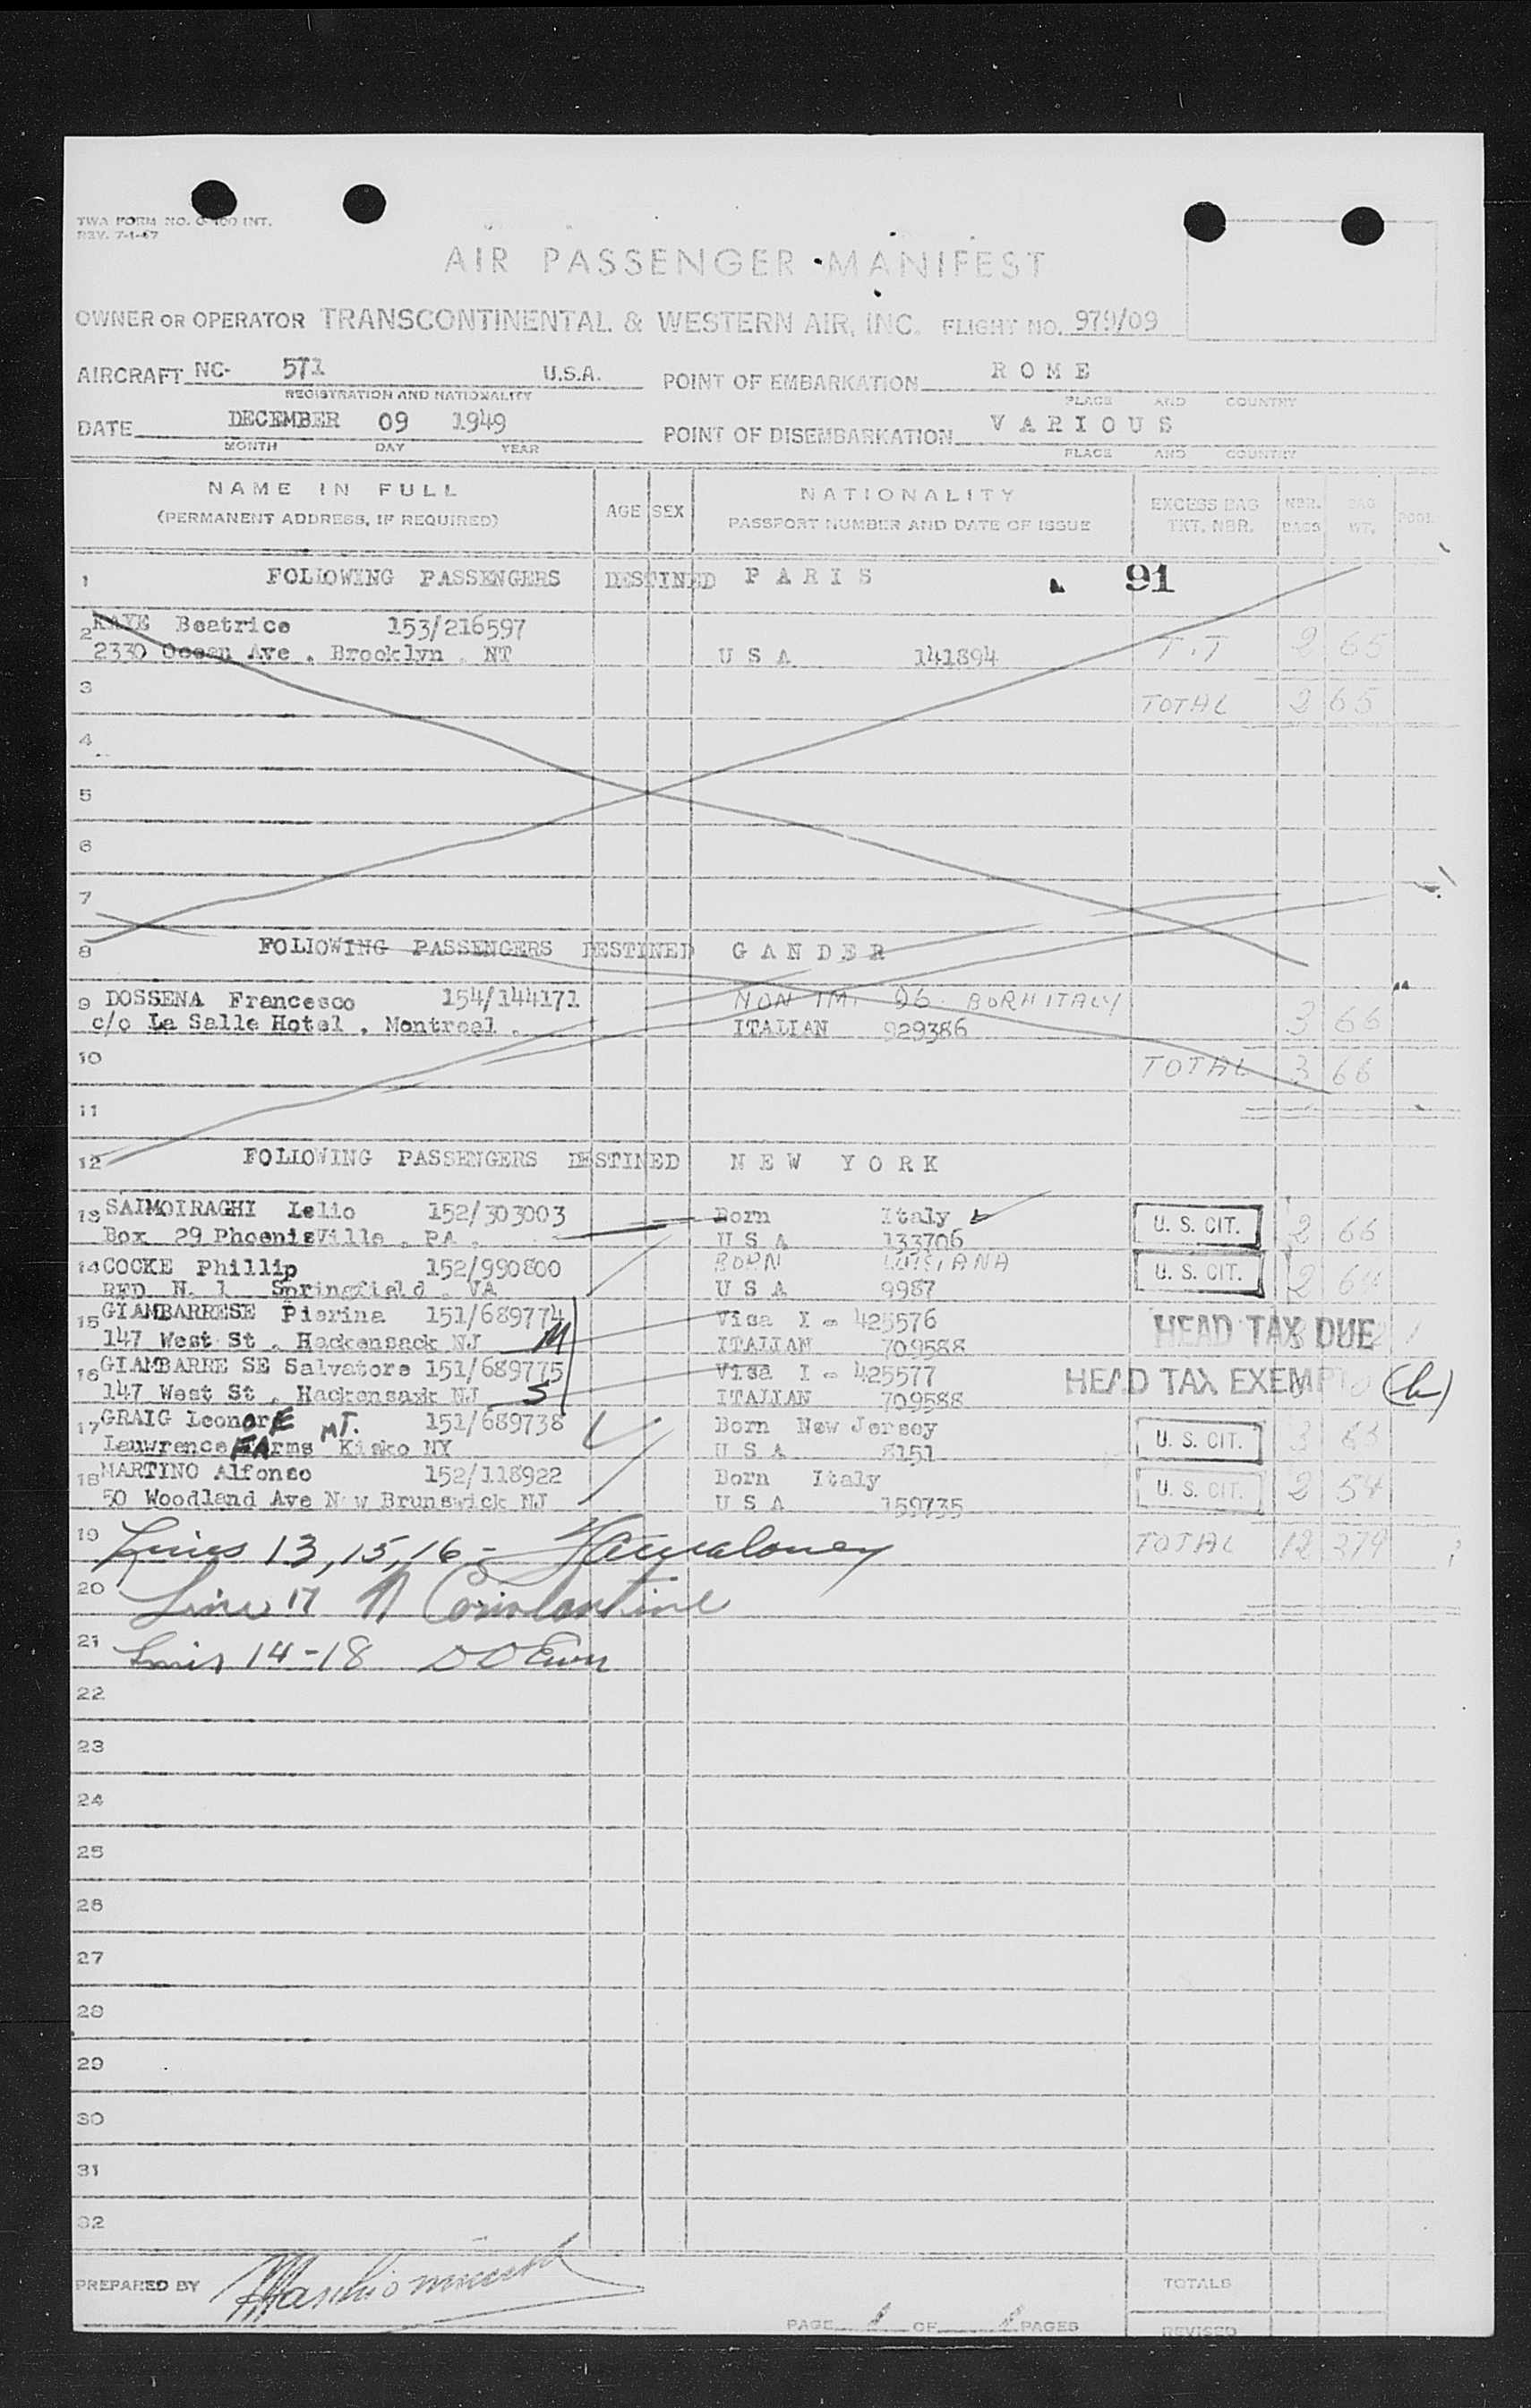 TWA FORM NO. INT.
REV. 7-1-47
AIR PASSENGER MANIFEST
OWNER OR OPERATOR TRANSCONTINENTAL & WESTERN AIR, INC. FLIGHT NO. 979/09
AIRCRAFT NC- 571 U.S.A. POINT OF EMBARKATION R O M E
REGISTRATION AND NATIONALITY PLACE AND COUNTRY
DATE DECEMBER 09 1949 POINT OF DISEMBARKATION V A R I O U S
MONTH DAY YEAR PLACE AND COUNTRY
NAME IN FULL AGE SEX NATIONALITY EXCESS BAG NBR. BAG
(PERMANENT ADDRESS, IF REQUIRED) PASSPORT NUMBER AND DATE OF ISSUE TKT. NBR. BAGS WT.
1 FOLLOWING PASSENGERS DESTINED P A R I S 91
2 KAYE Beatrice 153/216597 T.T 2 65
2330 Ocean Ave . Brooklyn . NT U S A 141894
3 TOTAL 2 65
4
5
6
7
8 FOLLOWING PASSENGERS DESTINED G A N D E R
9 DOSSENA Francesco 154/144171 NON IM. 26 BORN ITALY 3 66
c/o La Salle Hotel . Montreal . ITALIAN 929386
10 TOTAL 3 66
11
12 FOLLOWING PASSENGERS DESTINED N E W Y O R K
13 SAIMOIRAGHI Lelio 152/303003 Born Italy U. S. CIT. 2 66
Box 29 PhoenisVille . PA . U S A 133706
14 COCKE Phillip 152/990800 BORN LUISIANA U. S. CIT. 2
RFD N. 1 Springfield . VA U S A 9987
15 GIAMBARRESE Pierina 151/689774 Visa I - 425576 HEAD TAX DUE
147 West St . Hackensack NJ M ITALIAN 709588
16 GIAMBARRE SE Salvatore 151/689775 Visa I - 425577 HEAD TAX EXEMPT
147 West St . Hackensaxk NJ S ITALIAN 709588
17 GRAIG LeonorE MT. 151/689738 Born New Jersey U. S. CIT. 3
Lauwrence FArms Kisko NY U S A 8151
18 MARTINO Alfonso 152/118922 Born Italy U. S. CIT. 2 54
50 Woodland Ave New Brunswick NJ U S A 159735
19 Lines 13, 15, 16 - TOTAL 12 279
20 Line 17
21 Lines 14-18
22
23
24
25
26
27
28
29
30
31
32
PREPARED BY TOTALS
PAGE 1 OF 1 PAGES REVISED